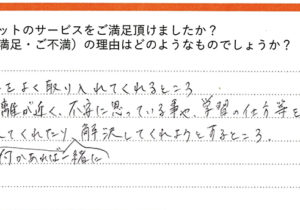 ットのサービスをご満足頂けましたか？
満足・ご不満）の理由はどのようなものでしょうか？
をよく取り入れてくれるところ
離が近く、不安に思っている事や、学習の仕方等を
してくれたり、解決してくれようとするところ。
何かあれば一緒に